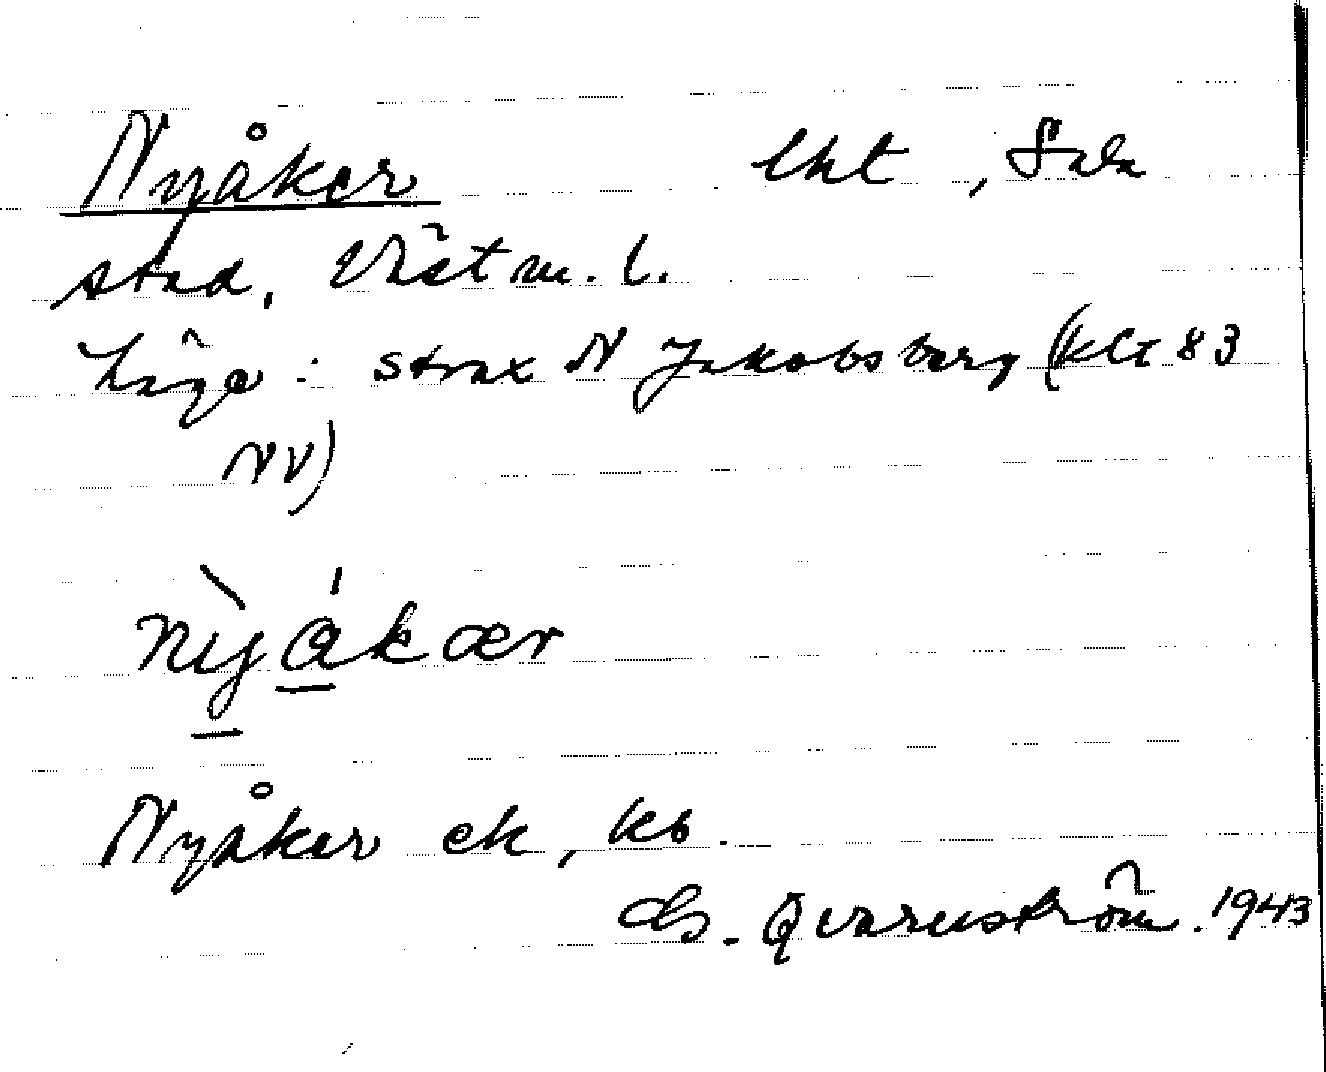 Nyåker lht, Sala
stad, Västm. l.
Läge: strax N Jakobsberg (kbl 83
NV)
nỳákær
Nyåker ek, kb.
G. Qvarnström. 1943